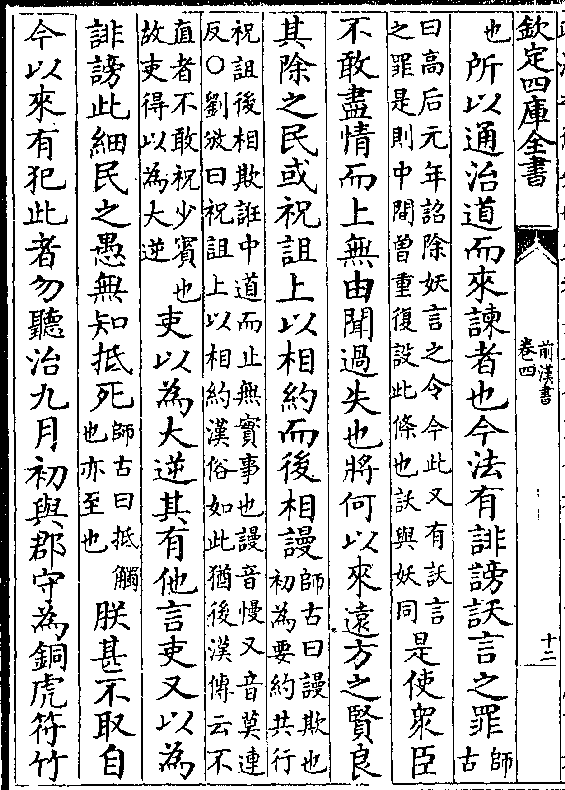 欽定四庫全書
前漢書
卷四
十二
也所以通治道而來諫者也今法有誹謗訞言之罪師古
曰高后元年詔除妖言之令今此又有訞言
之罪是則中間曽重復設此條也訞與妖同是使衆臣
不敢盡情而上無由聞過失也將何以來遠方之賢良
其除之民或祝詛上以相約而後相謾師古曰謾欺也
初為要約共行
祝詛後相欺誑中道而止無實事也謾音慢又音莫連
反○劉攽曰祝詛上以相約漢俗如此猶後漢傳云不
直者不敢祝少賓也
故吏得以為大逆吏以為大逆其有他言吏又以為
誹謗此細民之愚無知抵死師古曰抵觸
也亦至也朕甚不取自
今以來有犯此者勿聽治九月初與郡守為銅虎符竹